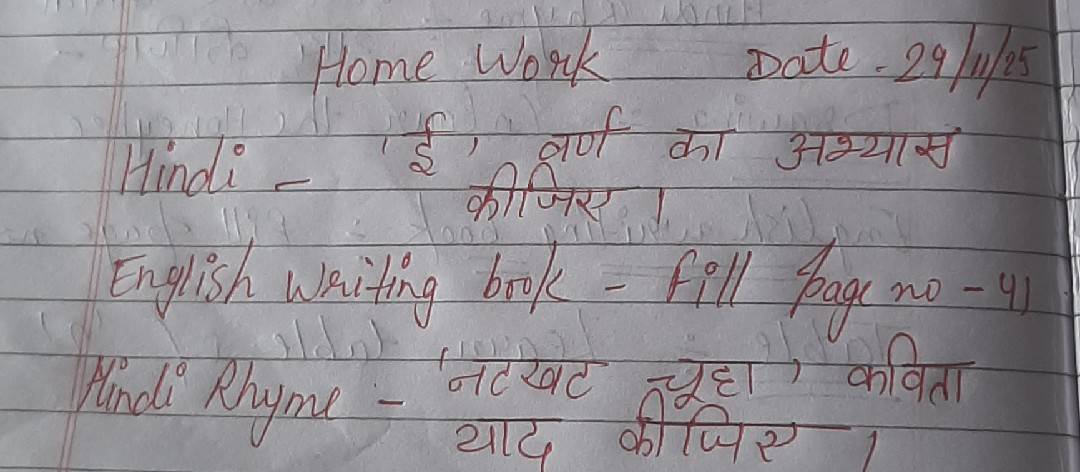 Home Work Date - 29/11/25
Hindi - 'ई' वर्ण का अभ्यास
कीजिए ।
English Writing book - fill page no - 41
Hindi Rhyme - 'नटखट चूहा' कविता
याद कीजिए ।